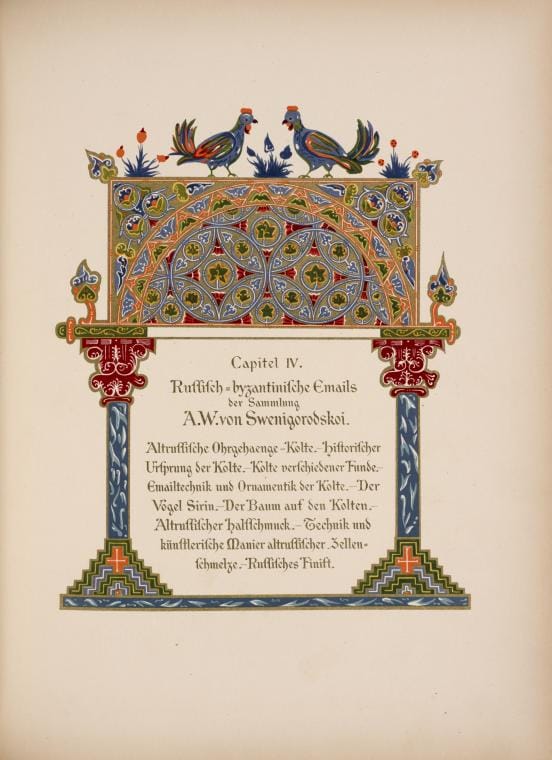 Capitel IV.
Ruſſiſch=byzantiniſche Emails
der Sammlung
A.W. von Swenigorodskoi.
Altruſſiſche Ohrgehaenge–Kolte.–Hiſtoriſcher
Urſprung der Kolte.–Kolte verſchiedener Funde.–
Emailtechnik und Ornamentik der Kolte.–Der
Vogel Sirin.–Der Baum auf den Kolten.–
Altruſſiſcher Halſſchmuck.–Technik und
künſtleriſche Manier altruſſiſcher Zellen=
ſchmelze.–Ruſſiſches Finift.